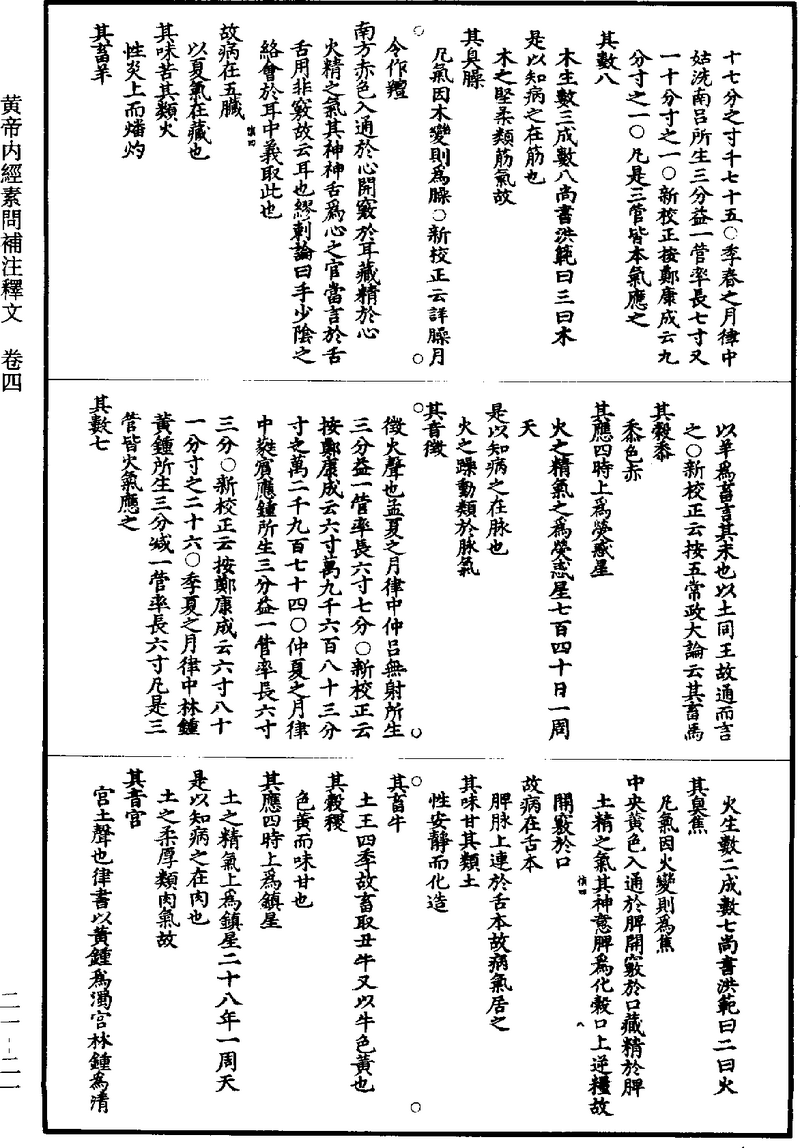 十七分之寸千七十五○季春之月律中
姑洗南呂所生三分益一管率長七寸又
一十分寸之一○新校正按鄭康成云九
分寸之一○凡是三管皆本氣應之
其數八
木生數三成數八尚書洪範曰三曰木
是以知病之在筋也
木之堅柔類筋氣故
其臭臊
凡氣因木變則為臊○新校正云詳臊月
令作羶
南方赤色入通於心開竅於耳藏精於心
火精之氣其神神舌爲心之官當言於舌
舌用非竅故云耳也繆刺論曰手少陰之
絡會於耳中義取此也
故病在五臟
以夏氣在藏也
其味苦其類火
性炎上而燔灼
其畜羊
以羊爲畜言其未也以土同王故通而言
之○新校正云按五常政大論云其畜馬
其穀黍
黍色赤
其應四時上爲熒惑星
火之精氣之爲熒惑星七百四十日一周
天
是以知病之在脉也
火之躁動類於脉氣
其音徵
徵火聲也孟夏之月律中仲呂無射所生
三分益一管率長六寸七分○新校正云
按鄭康成云六寸萬九千六百八十三分
寸之萬二千九百七十四○仲夏之月律
中蕤賓應鍾所生三分益一管率長六寸
三分○新校正云按鄭康成云六寸八十
一分寸之二十六○季夏之月律中林鍾
黃鍾所生三分減一管率長六寸凡是三
管皆火氣應之
其數七
火生數二成數七尚書洪範曰二曰火
其臭焦
凡氣因火變則爲焦
中央黃色入通於脾開竅於口藏精於脾
土精之氣其神意脾爲化穀口上逆糧故
開竅於口
故病在舌本
脾脉上連於舌本故病氣居之
其味甘其類土
性安靜而化造
其畜牛
土王四季故畜取丑牛又以牛色黃也
其穀稷
色黃而味甘也
其應四時上爲鎮星
土之精氣上爲鎮星二十八年一周天
是以知病之在肉也
土之柔厚類肉氣故
其音宮
宮土聲也律書以黃鍾爲濁宮林鍾爲清
黄帝内經素問補注釋文　卷四
二一－二一